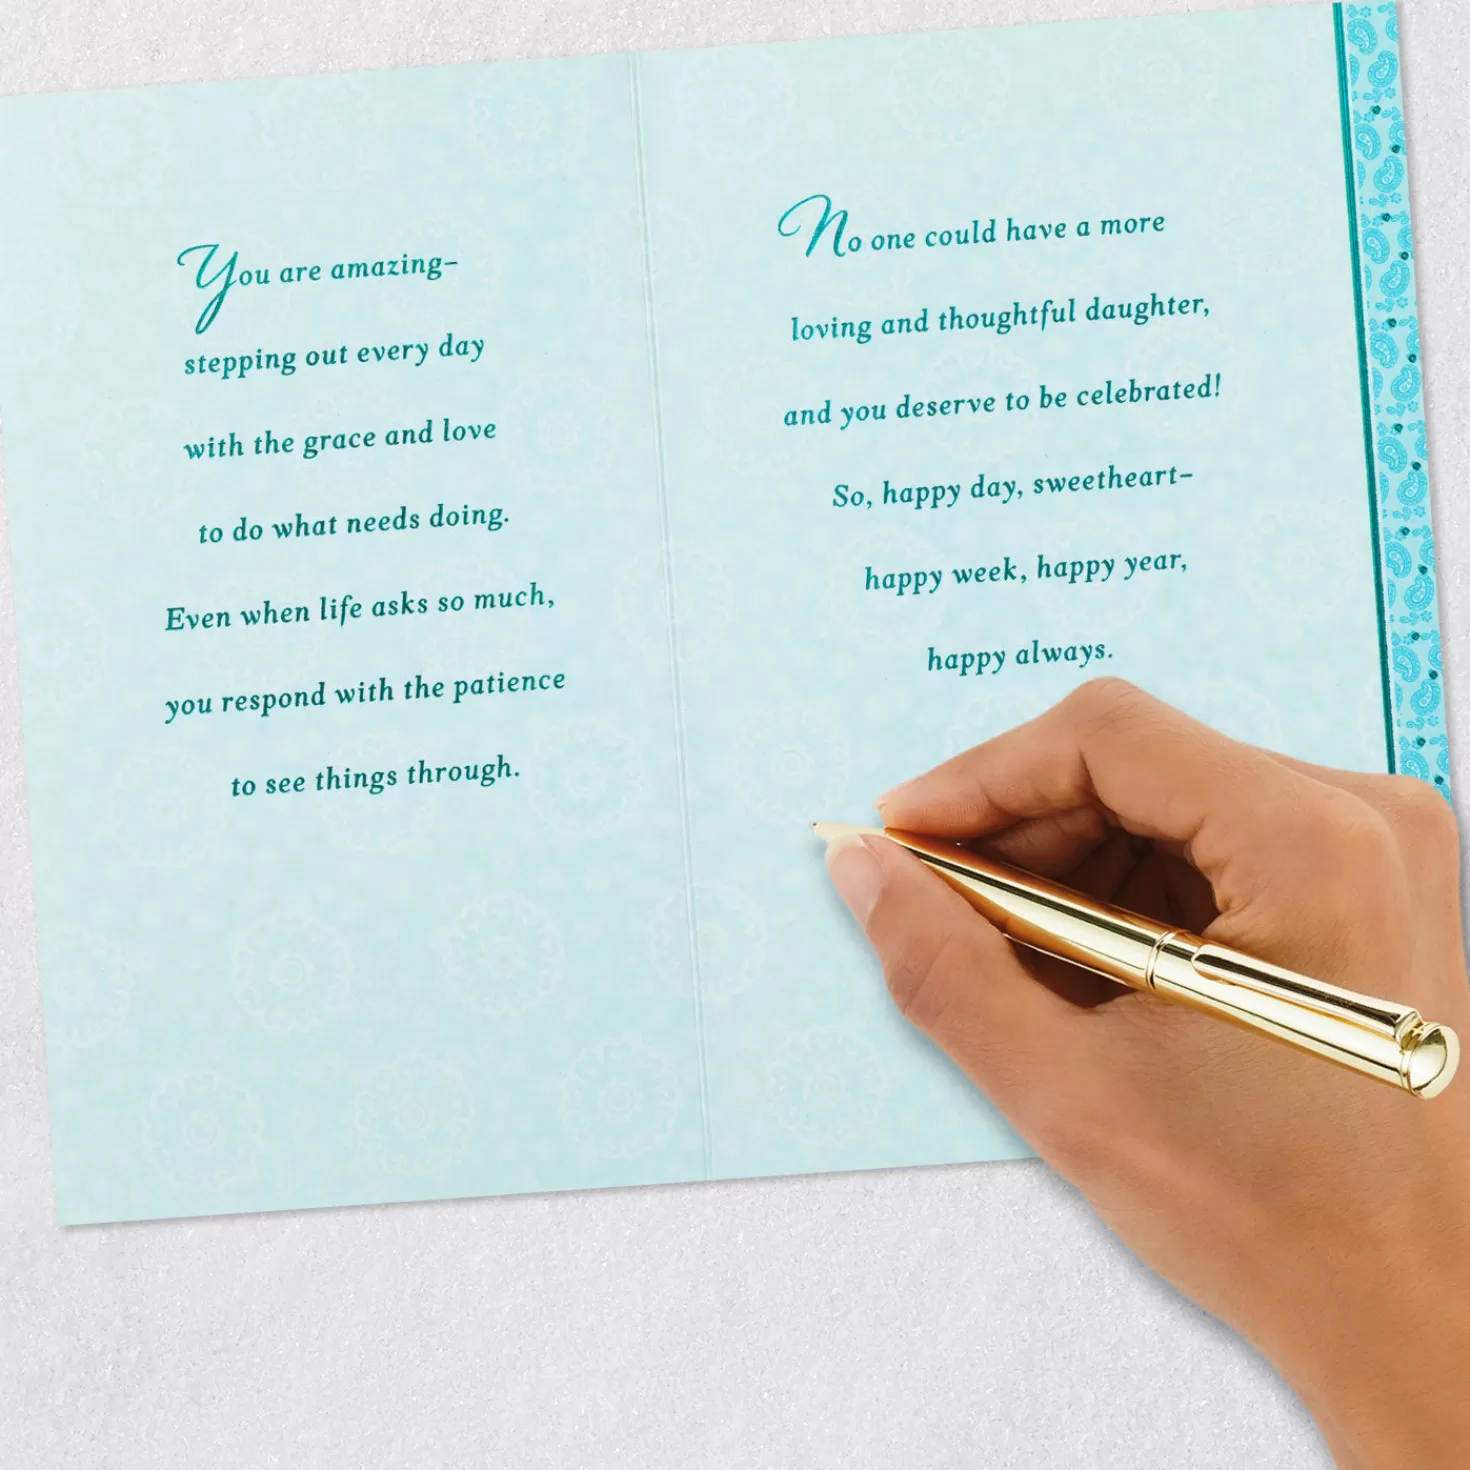 You are amazing–
stepping out every day
with the grace and love
to do what needs doing.
Even when life asks so much,
you respond with the patience
to see things through.
No one could have a more
loving and thoughtful daughter,
and you deserve to be celebrated!
So, happy day, sweetheart–
happy week, happy year,
happy always.